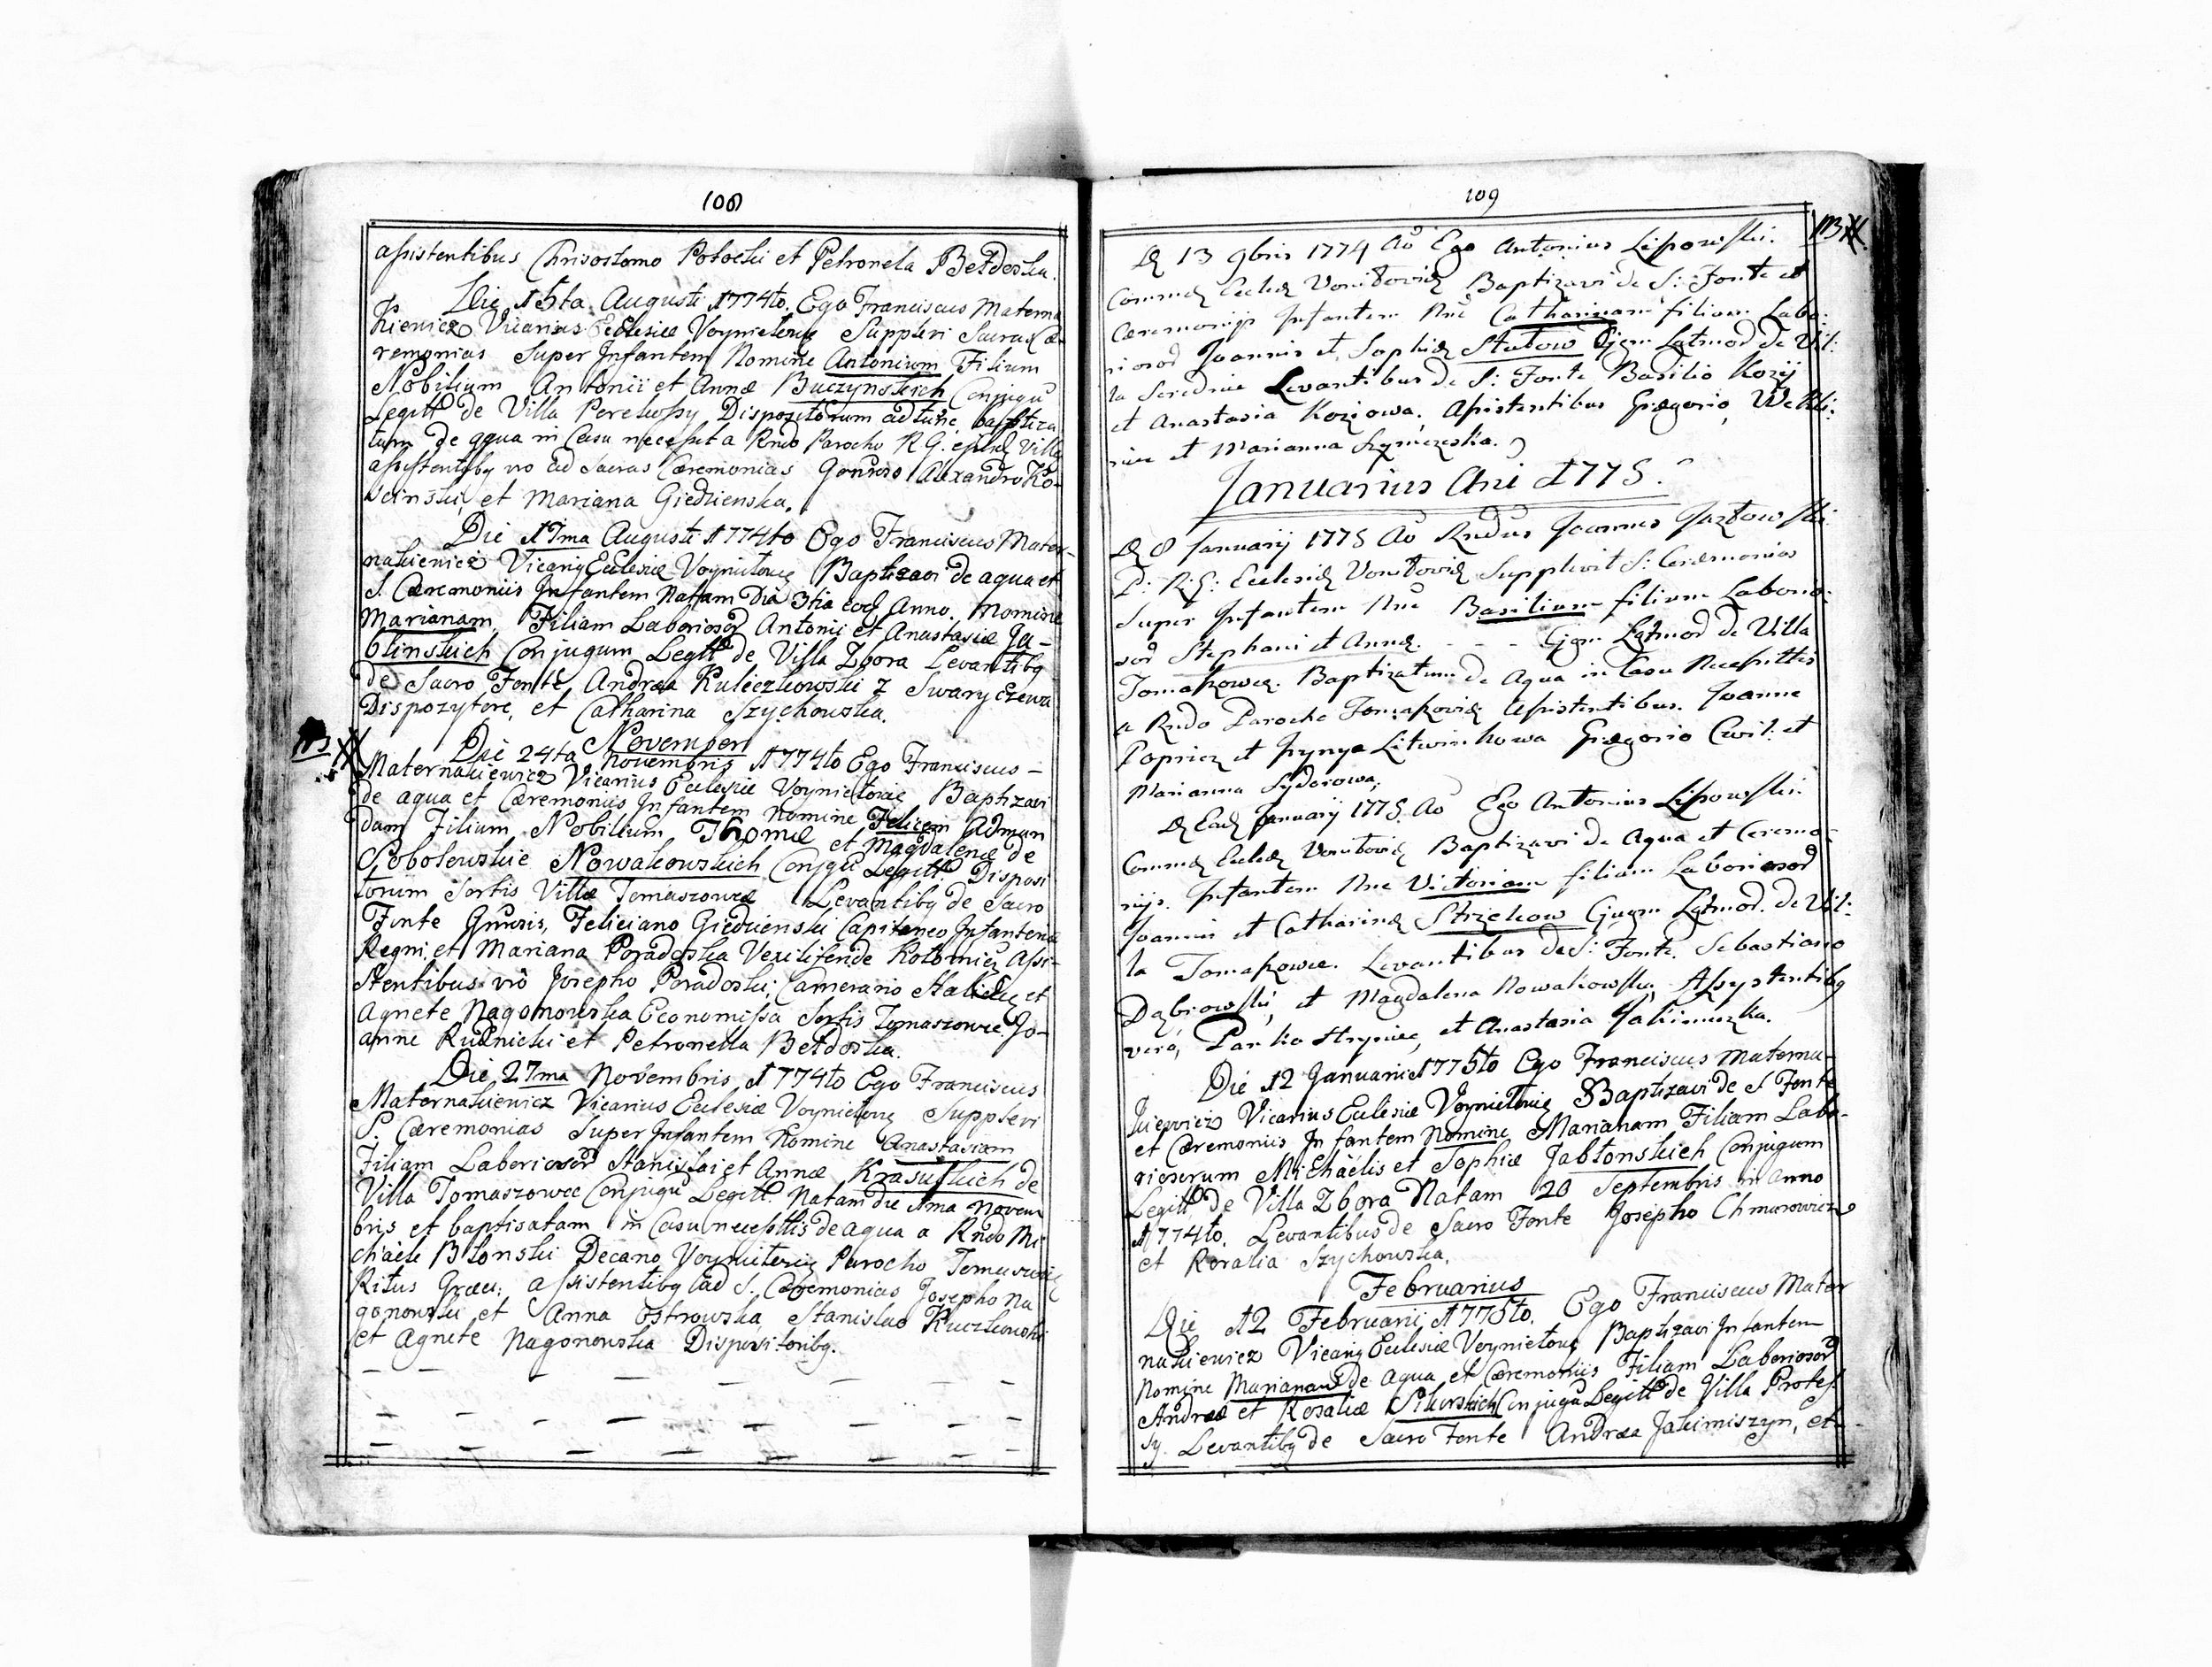 108
assistentibus Chrisostomo Potocki et Petronela Bełdoska.
Die 15ta Augusti 1774to. Ego Franciscus Materna
kiewicz Vicarius Ecclesiæ Voynielovię Supplevi Sacras Cæ-
remonias Super Infantem Nomine Antonium Filium
Nobilium Antonii et Annæ Buczynskich Conjugū
Legitt de Villa Perekossy Dispozitorum ad tunc, baptiza
tum de aqua in Casu necessit a Rndo Parocho R. G. ejusd Villa
assistentibq vo ad Sacras Cæremonias Gonroso Alexandro Ko-
scinski, et Mariana Giedzienska.
Die 17ma Augusti 1774to Ego Franciscus Mater-
nakiewicz Vicariq Ecclesiæ Voynielovię Baptizavi de aqua et
S. Cæremoniis Infantem Natam Dia 3tia eod Anno. Nomine
Marianam, Filiam Laboriosor Antonii et Anastasiæ Ja-
blinskich Conjugum Legitt de Villa Zbora Levantibq
de Sacro Fonte Andræa Kuleczkowski z Swaryczewa
Dispozytore, et Catharina Szychowska.
November
Die 24ta Novembris 1774to Ego Franciscus -
Maternakiewicz Vicarius Ecclesiæ Voynielovię Baptizavi
de aqua et Cæremoniis Infantem Nomine Felicem Admun
dum Filium Nobilium Thomæ et Magdalenæ de
Sobolewskie Nowakowskich Conjgū Legitt. Disposi
torum Sortis Villæ Tomaszowcæ Levantibq de Sacro
Fonte Gnrosis, Feliciano Giedzienski Capitaneo Infanteria
Regni et Mariana Poradoska Vexiliferide Kolomięs Assi-
stentibus vrô Josepho Poradoski, Camerario Halicię et
Agnete Nagonowska Economissa Sortis Tomaszowce Jo-
anne Rudnicki et Petronella Bełdoska.
Die 27ma Novembris 1774to Ego Franciscus
Maternakiewicz Vicarius Ecclesiæ Voynielovię Supplevi
S. Cæremonias Super Infantem Nomine Anastasiam
Filiam Laboriosor Stanislai et Annæ Krasuskich de
Villa Tomaszowce Conjugū Legitt. Natam die 1ma Novem
bris et baptisatam in Casu necessttis de aqua a Rndo Mi
chaele Błonski Decano Voynielovię Parocho Tomaszovię
Ritus Græci; assistentibq ad S. Cæremonias Josepho Na
gonowski et Anna Ostrowska, Stanislao Kuczkowski
et Agnete Nagonowska Dispositoribq.
109
D 13 9bris 1774 Ao Ego Antonius Lipowski
Commd Ecclæ Baptizavi de S: Fonte et
Cæremonijs Infantem Nne Catharinam filiam Labo:
riosor Joannis et Sophiæ Stutow Cjgm Lgtmod De Vil:
la Seredne Levantibus de S: Fonte Basilio Kozij
et Anastasia Koziowa, Assistentibus Gregorio
et Marianna
Januarius Ani 1775.
D 8 Januarij 1775 Ao Rndus Joannes Jaztowski
P: R: G: Ecclesiæ Supplevit S: Ceremonias
Super Infantem Nne Basilium filium Laborio:
sor Stephani et Annæ. - - - Cjgm Lgtmod de Villa
Tomaszowce. Baptizatum de Aqua in Casu Necessittis
a Rndo Parocho Tomaszoviæ Assistentibus. Joanne
Popniez et Hrynya Litwinkowa Gregorio Cwil: et
Marianna Sydorowa,
D Ead January 1775. Ao Ego Antonius Lipowski
Commd Ecclæ Baptizavi de Aqua et Ceremo-
nijs. Infantem Nne Victoriam filiam Laboriosor
Joannis et Catharinæ Strzekow Cjugm Lgtmod. de Vil:
la Tomaszowce. Levantibus de S: Fonte. Sebastiano
Dąbrowski, et Magdalena Nowakowska Assystentibq
vero, Panko Hryniec, et Anastasia Jakimuszka.
Die 12 Januarii 1775to Ego Franciscus Materna-
kiewicz Vicarius Ecclesiæ Voynielovię Baptizavi de S Fonte
et Cæremoniis Infantem Nomine Marianam Filiam Labo-
riosorum Michäelis et Sophiæ Jabłonskich Conjugum
Legitt de Villa Zbora Natam 20 Septembris in Anno
1774to. Levantibus de Sacro Fonte Josepho Chmurowicz
et Roralia Szychowska.
Februarius
Die 12 Februarii 1775to. Ego Franciscus Mater
nakiewicz Vicariq Ecclesiæ Voynielovię Baptizavi Infantem
Nomine Marianam de aqua et Cæremoniis Filiam Laboriosor
Andreæ et Rosaliæ Sikorskich Conjugū Legitt de Villa Protes
sy. Levantibq de Sacro Fonte Andræa Jakimiszyn, et